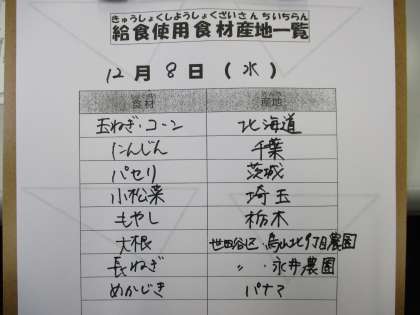 きゅうしょくしようしょくざいさんちいちらん
給食使用食材産地一覧
12月 8日 (水)
食材 産地
玉ねぎ・コーン 北海道
にんじん 千葉
パセリ 茨城
小松菜 埼玉
もやし 栃木
大根 世田谷区・烏山北9丁目農園
長ねぎ 〃 ・永井農園
めかじき パナマ